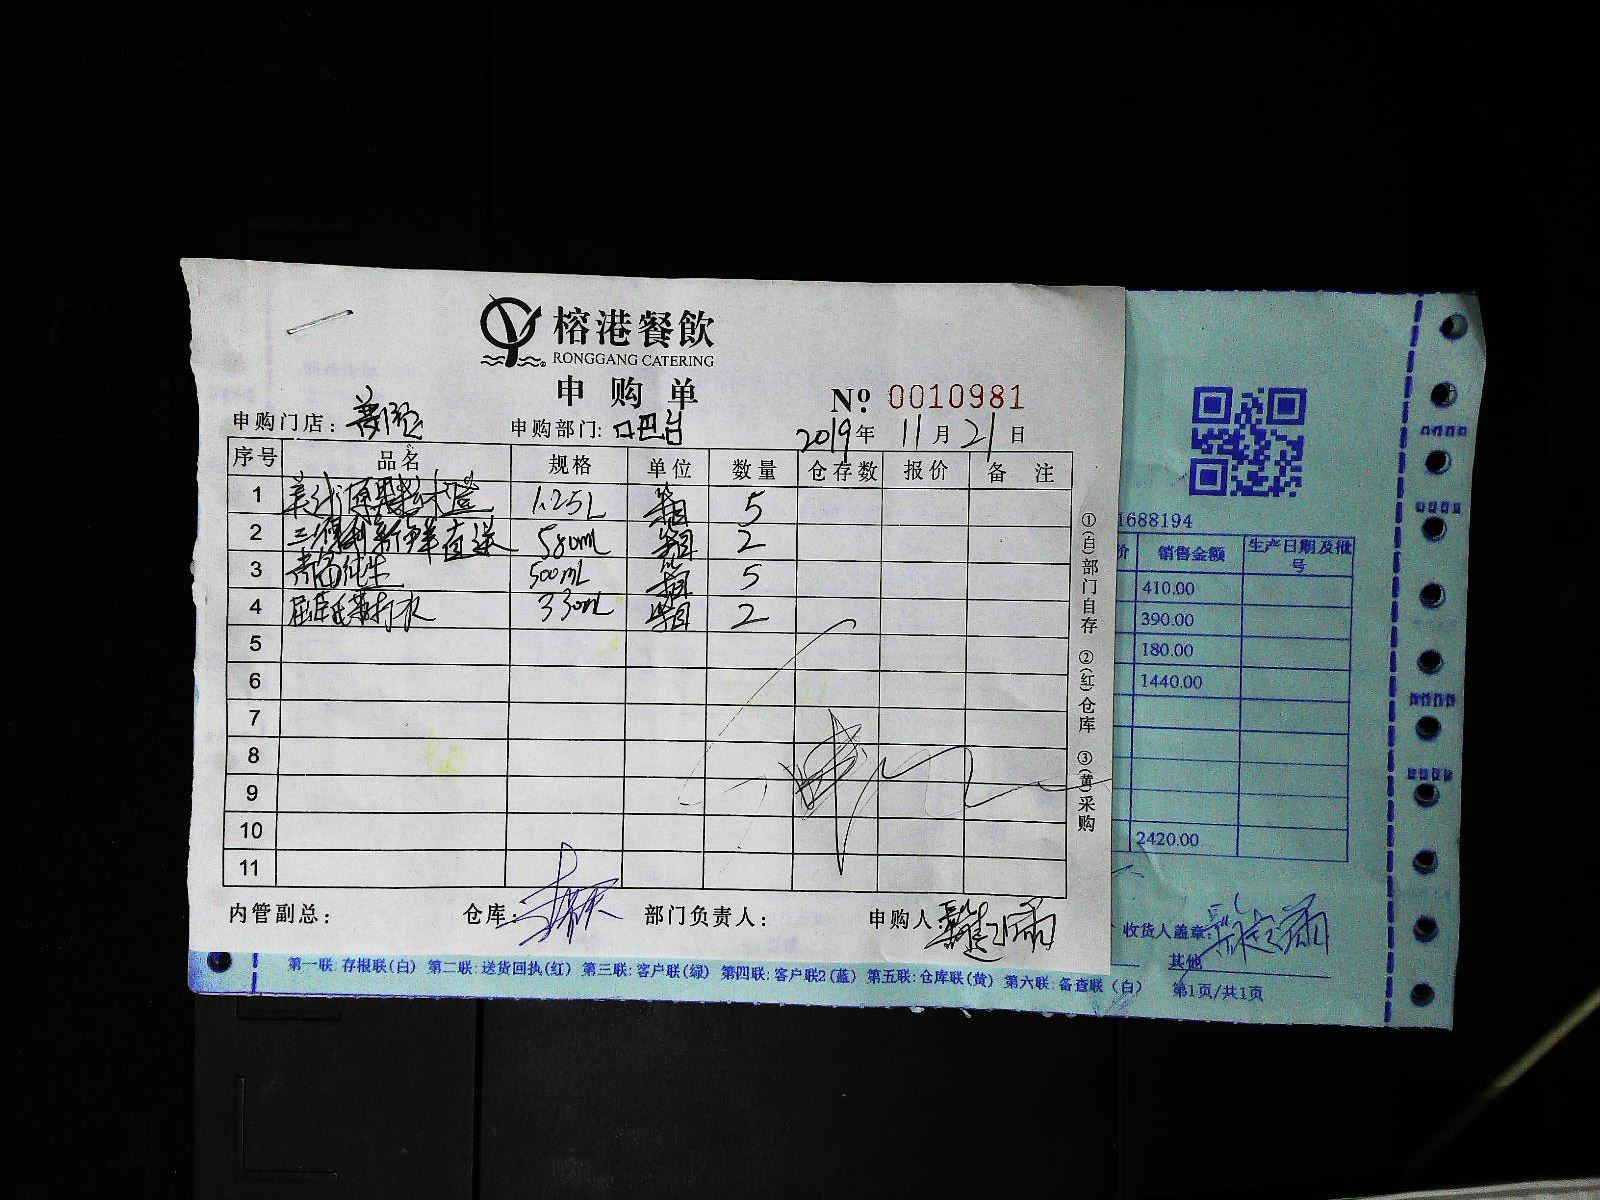 榕港餐飲
RONGGANG CATERING
申购单
No. 0010981
申购门店： 申购部门: 吧台 2019年 11月 21日
序号 品名 规格 单位 数量 仓存数 报价 备 注
1 美汁源果粒橙 1.25L 箱 5
2 三得利新鲜直送 580mL 箱 2
3 青岛纯生 500mL 箱 5
4 屈臣氏苏打水 330mL 箱 2
5
6
7
8
9
10
11
内管副总： 仓库： 部门负责人： 申购人：
①(白)部门自存 ②(红)仓库 ③(黄)采购
1688194
价 销售金额 生产日期及批号
410.00
390.00
180.00
1440.00
2420.00
收货人盖章:
其他
第一联:存根联(白) 第二联:送货回执(红) 第三联:客户联(绿) 第四联:客户联2(蓝) 第五联:仓库联(黄) 第六联:备查联(白) 第1页/共1页